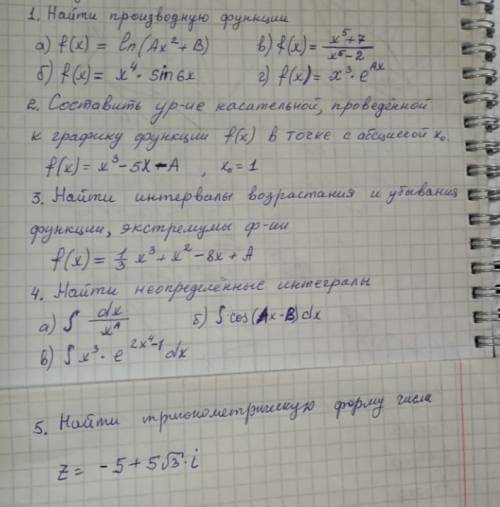 1. Найти производную функции
а) f(x) = ln(Ax² + B) в) f(x) = (x⁵+7)/(x⁵-2)
б) f(x) = x⁴ · sin6x г) f(x) = x³ · e^(Ax)
2. Составить ур-ие касательной, проведённой
к графику функции f(x) в точке с абсциссой x₀.
f(x) = x³ - 5x - A , x₀ = 1
3. Найти интервалы возрастания и убывания
функции, экстремумы ф-ии
f(x) = 1/3 x³ + x² - 8x + A
4. Найти неопределённые интегралы
а) ∫ dx/x^A б) ∫ cos(Ax-B)dx
в) ∫ x³ · e^(2x⁴-1) dx
5. Найти тригонометрическую форму числа
z = -5 + 5√3 · i